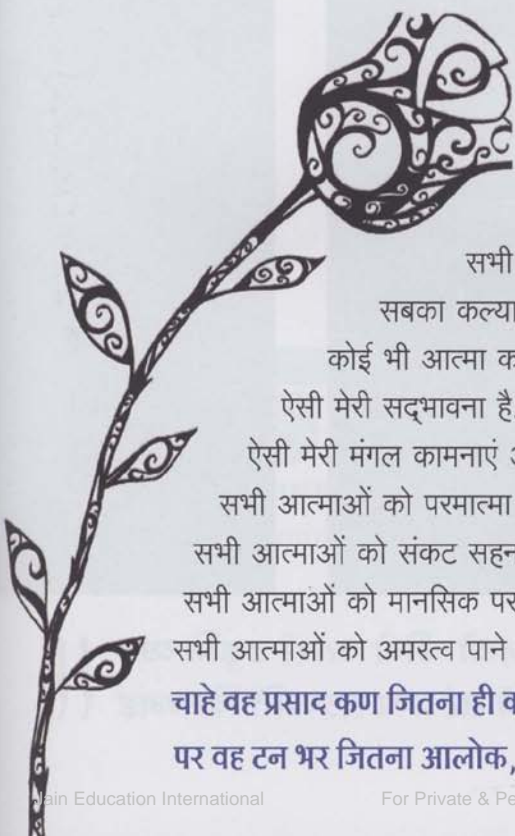 सभी
सबका कल्या
कोई भी आत्मा क
ऐसी मेरी सद्‌भावना है
ऐसी मेरी मंगल कामनाएं
सभी आत्माओं को परमात्मा
सभी आत्माओं को संकट सहन
सभी आत्माओं को मानसिक पर
सभी आत्माओं को अमरत्व पाने
चाहे वह प्रसाद कण जितना ही क
पर वह टन भर जितना आलोक,
Jain Education International For Private & Pe